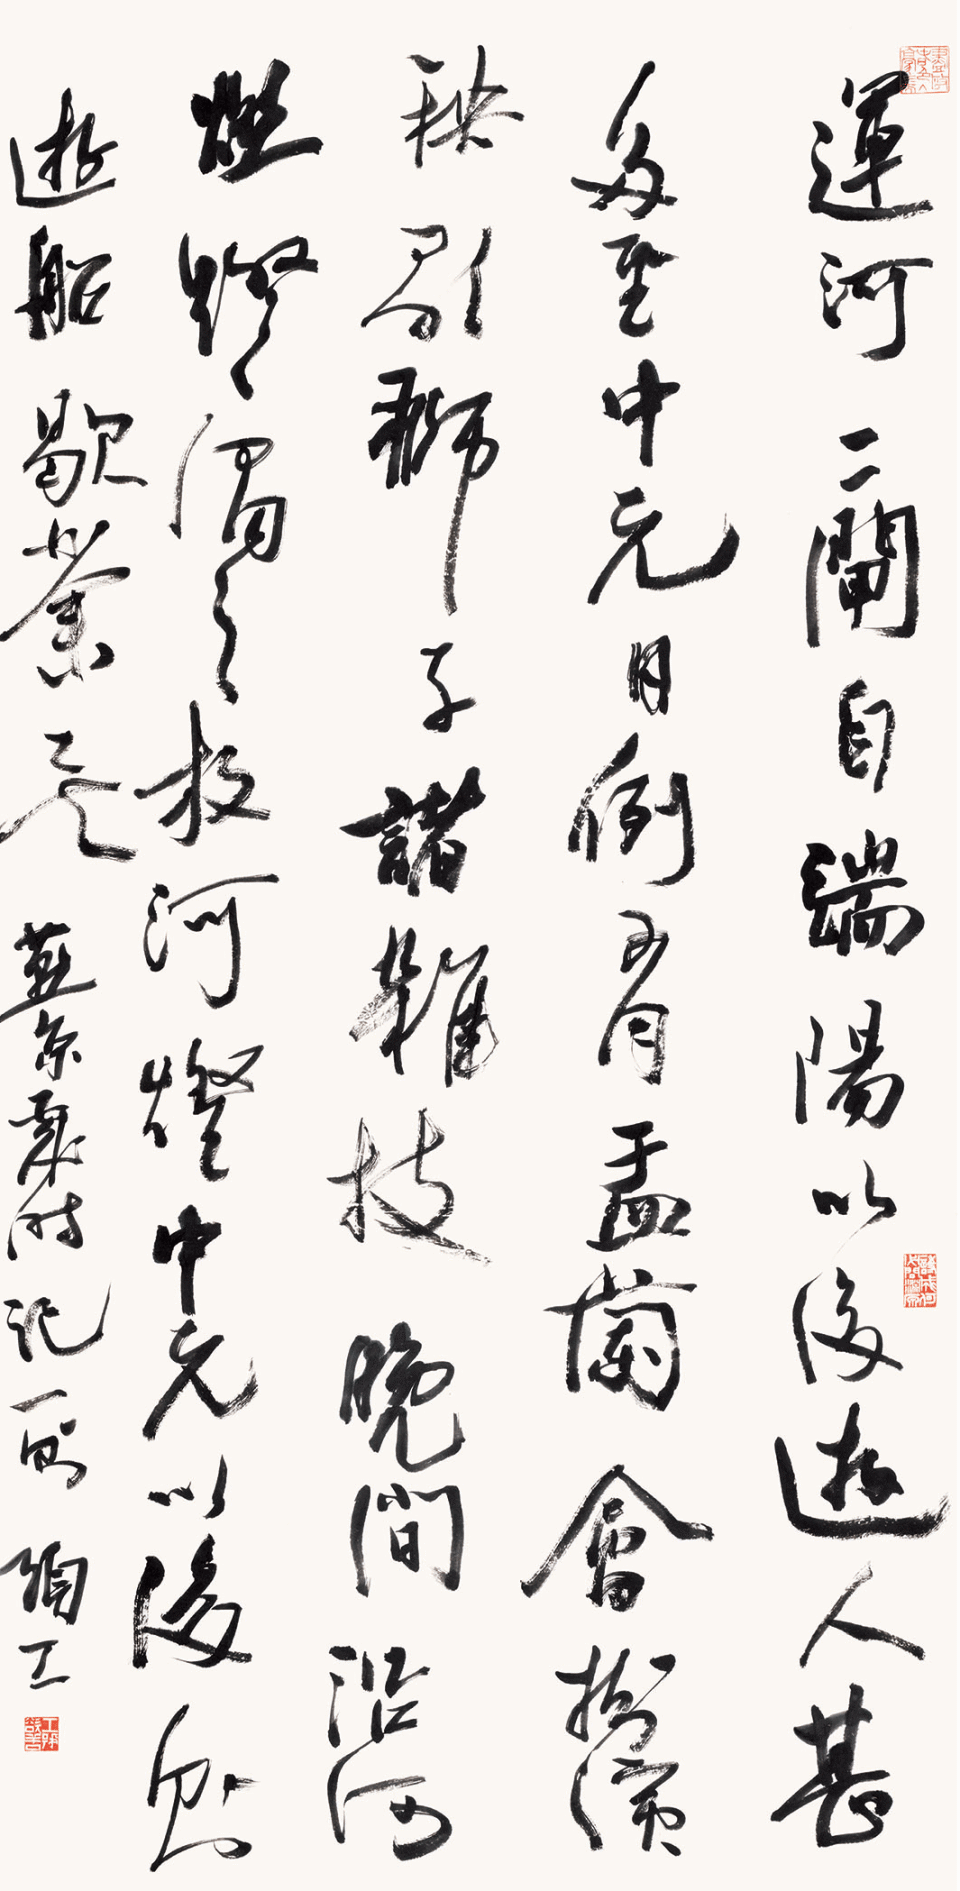 運河二閘自端陽以後遊人甚
多至中元日例有盂蘭會扮演
秧歌獅子諸雜技晚間沿河
燃燈謂之放河燈中元以後則
遊船歇業矣
燕京歲時記一則